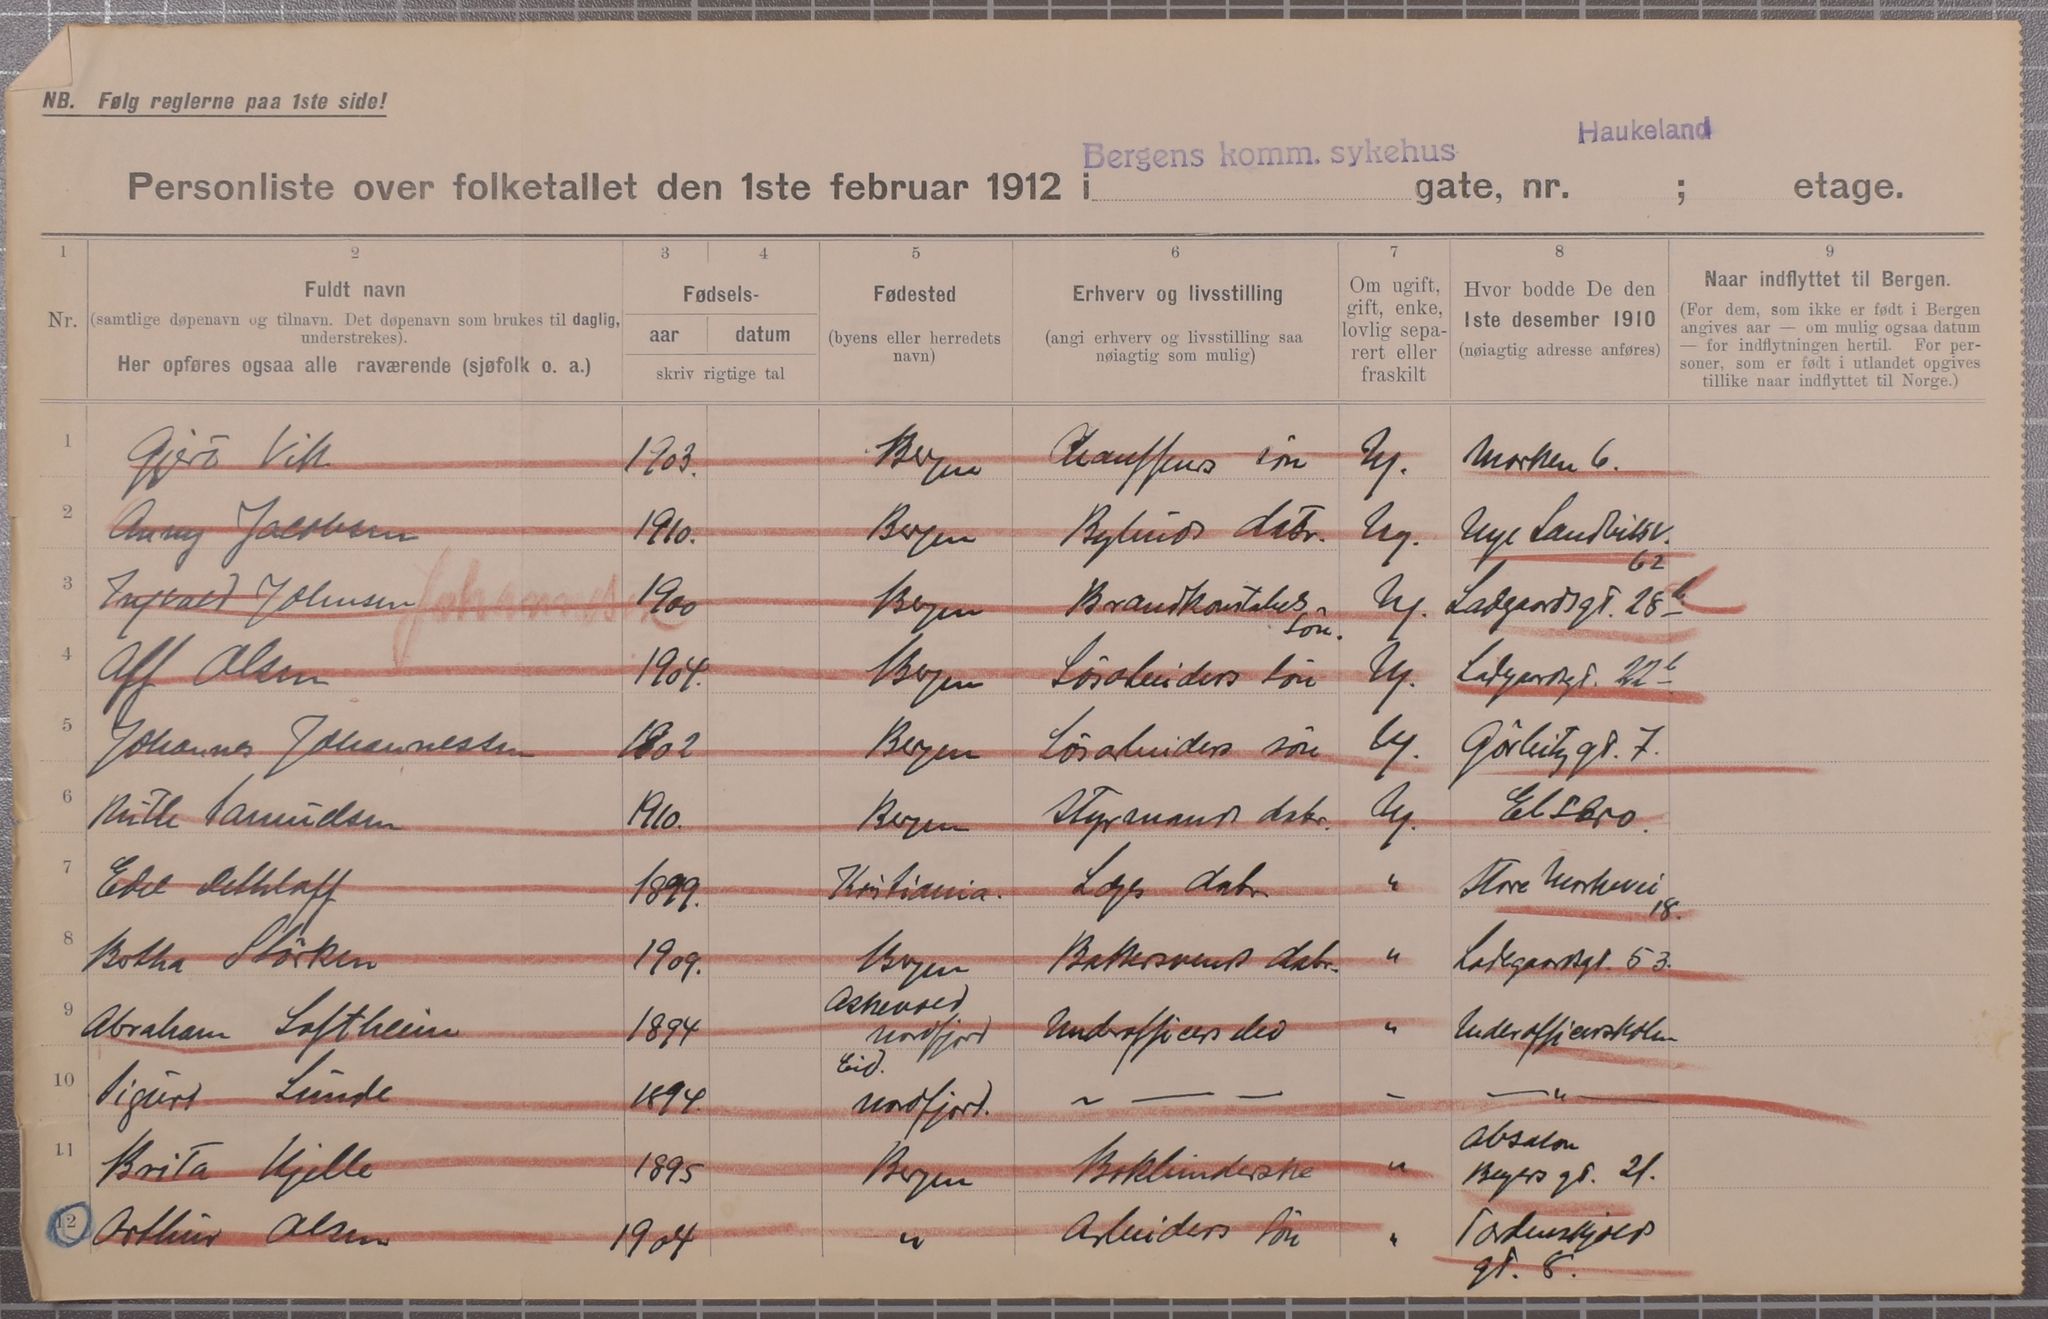 NB. Følg reglerne paa 1ste side!
Haukeland
Bergens komm. sykehus
Personliste over folketallet den 1ste februar 1912 i gate, nr. ; etage.
1 2 3 4 5 6 7 8 9
Nr.
Fuldt navn
(samtlige døpenavn og tilnavn. Det døpenavn som brukes til daglig,
understrekes).
Her opføres ogsaa alle raværende (sjøfolk o. a.)
Fødsels-
aar datum
skriv rigtige tal
Fødested
(byens eller herredets
navn)
Erhverv og livsstilling
(angi erhverv og livsstilling saa
nøiagtig som mulig)
Om ugift,
gift, enke,
lovlig sepa-
rert eller
fraskilt
Hvor bodde De den
1ste desember 1910
(nøiagtig adresse anføres)
Naar indflyttet til Bergen.
(For dem, som ikke er født i Bergen
angives aar — om mulig ogsaa datum
— for indflytningen hertil. For per-
soner, som er født i utlandet opgives
tillike naar indflyttet til Norge.)
1 Gjerö Vik 1903. Bergen Chauffeurs sön Ug. Marken 6.
2 Anny Jacobsen 1910. Bergen Bybuds datr. Ug. Nye Sandviksv.
62
3 Ingvald Johnsen Johannesen 1900 Bergen Brandkonstabels- Ug. Ladegaardsgt. 28b
Sön.
4 Alf Olsen 1904. Bergen Lösarbeiders sön Ug. Ladegaardsgt. 22b
5 Johannes Johannessen 1902 Bergen Lösarbeiders sön Ug. Görbitzgt. 7.
6 Ruth Samuelsen 1910. Bergen Styrmands datr. Ug. Elsero.
7 Edel Dethloff 1899. Kristiania. Læges datr " Store Markevei
18.
8 Botha Störksen 1909. Bergen Bakersvends datr. " Ladegaardsgt. 53.
9 Abraham Loftheim 1894 Askevold
Nordfjord Underofficers elev " Underofficerskolen
10 Sigurd Lunde 1894. Eid.
Nordfjord. " — — - — " —
11 Brita Kjelle 1895 Bergen Bokbinderske " Absalon
Beyers gt. 21.
12 Arthur Olsen 1904 " Arbeiders sön " Tordenskjolds
gt. 8.